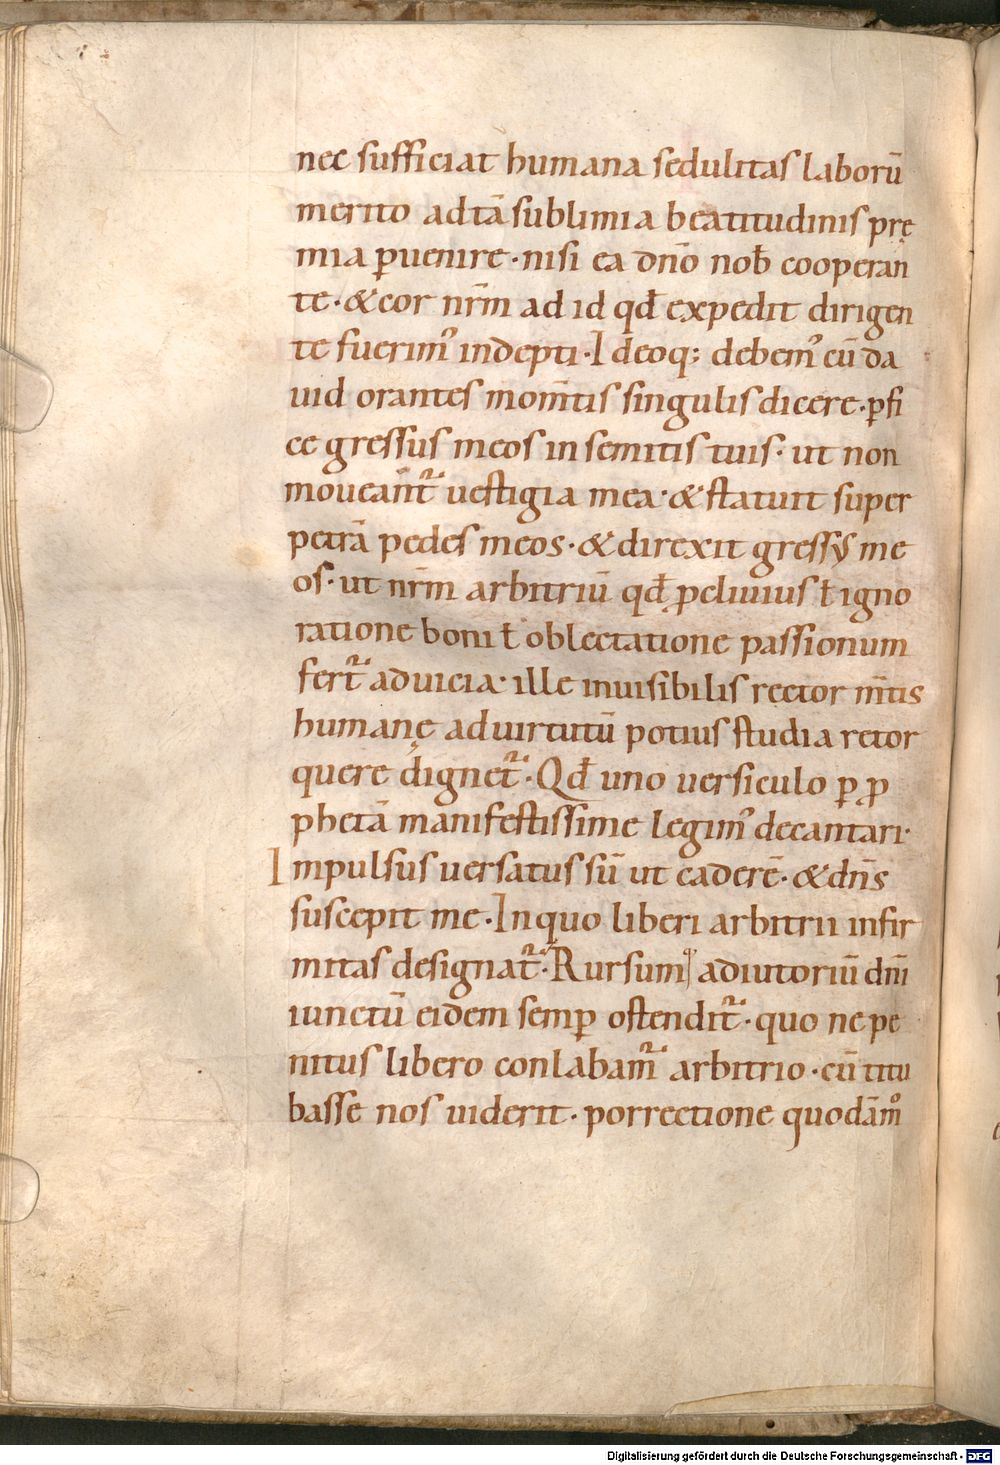 nec sufficiat humana sedulitas laborū
merito ad tā sublimia beatitudinis prę
mia ꝑuenire · nisi ea dn̄o nob̄ cooperan
te · & cor nr̄m ad id qd̄ expedit dirigen
te fuerimꝰ indepti · Ideoq; debemꝰ cū da
uid orantes mom̄tis singulis dicere · ꝑfi
ce gressus meos in semitis tuis · ut non
moueānt᷑ uestigia mea · & statuit super
petrā pedes meos · & direxit gressus me
os · ut nr̄m arbitriū qd̄ ꝓcliuius ł igno
ratione boni ł oblectatione passionum
fert᷑ ad uicia · ille inuisibilis rector m̄tis
humanę ad uirtutū potius studia retor
quere dignet᷑ · Qd̄ uno uersiculo ꝑ ꝓ
phetā manifestissime legimꝰ decantari ·
Impulsus uersatus sū ut caderē · & dn̄s
suscepit me · In quo liberi arbitrii infir
mitas designat᷑ · Rursum adiutoriū dn̄i
iunctū eidem semꝑ ostendit᷑ · quo ne pe
nitus libero conlabam᷑ arbitrio · cū titu
basse nos uiderit · porrectione quodām̊
Digitalisierung gefördert durch die Deutsche Forschungsgemeinschaft - DFG